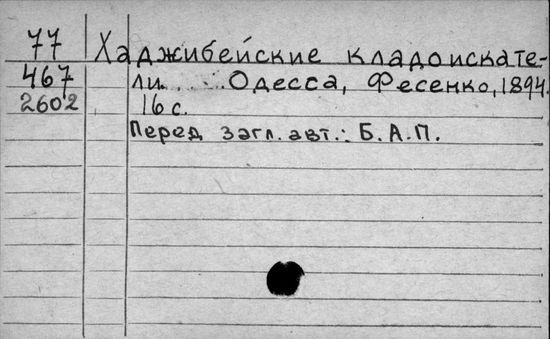 77 Хаджибейские кладоискате-
467 ли..... Одесса, Фесенко, 1894.
2602 16 с.
Перед загл. авт.: Б.А.П.